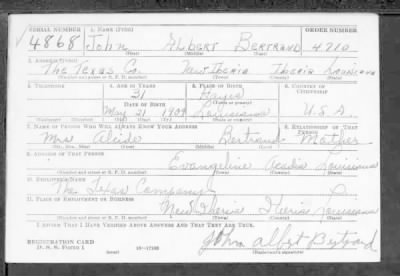 SERIAL NUMBER 1. NAME (Print) ORDER NUMBER
4868 John Albert Bertrand 4710
(First) (Middle) (Last)
2. ADDRESS (Print)
The Texas Co. New Iberia Iberia Louisiana
(Number and street or R. F. D. number) (Town) (County) (State)
3. TELEPHONE 4. AGE IN YEARS 5. PLACE OF BIRTH 6. COUNTRY OF CITIZENSHIP
31
(Town or county)
DATE OF BIRTH
May 21 1909 Louisiana U.S.A.
(Exchange) (Number) (Mo.) (Day) (Yr.) (State or country)
7. NAME OF PERSON WHO WILL ALWAYS KNOW YOUR ADDRESS 8. RELATIONSHIP OF THAT PERSON
Mrs Alcide Bertrand Mother
(Mr., Mrs., Miss) (First) (Middle) (Last)
9. ADDRESS OF THAT PERSON
Evangeline Acadia Louisiana
(Number and street or R. F. D. number) (Town) (County) (State)
10. EMPLOYER'S NAME
The Texas Company
11. PLACE OF EMPLOYMENT OR BUSINESS
New Iberia Iberia Louisiana
(Number and street or R. F. D. number) (Town) (County) (State)
I AFFIRM THAT I HAVE VERIFIED ABOVE ANSWERS AND THAT THEY ARE TRUE.
REGISTRATION CARD
D. S. S. Form 1 (over) 16—17105 John Albert Bertrand
(Registrant's signature)